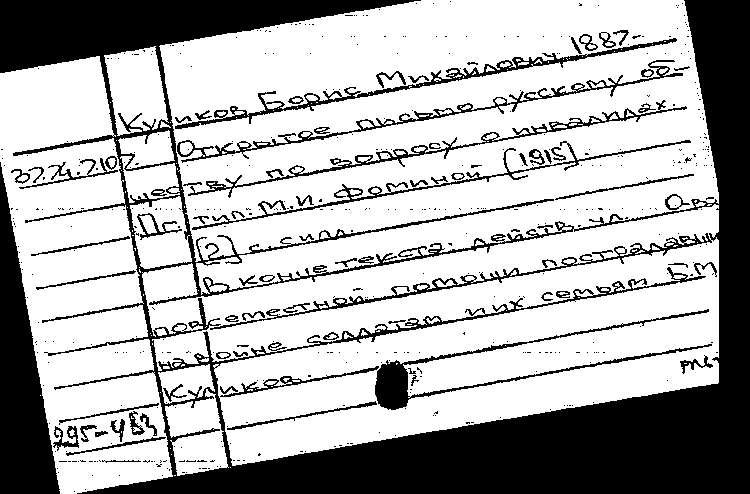 Куликов, Борис Михайлович, 1887-
37.74.7.107. Открытое письмо русскому об-
ществу по вопросу о инвалидах.
Пг., тип. М.И. Фоминой, [1915].
[2] с. силл.
В конце текста: действ. чл. О-ва
повсеместной помощи пострадавши
на войне солдатам и их семьям Б.М.
Куликов.
295-483